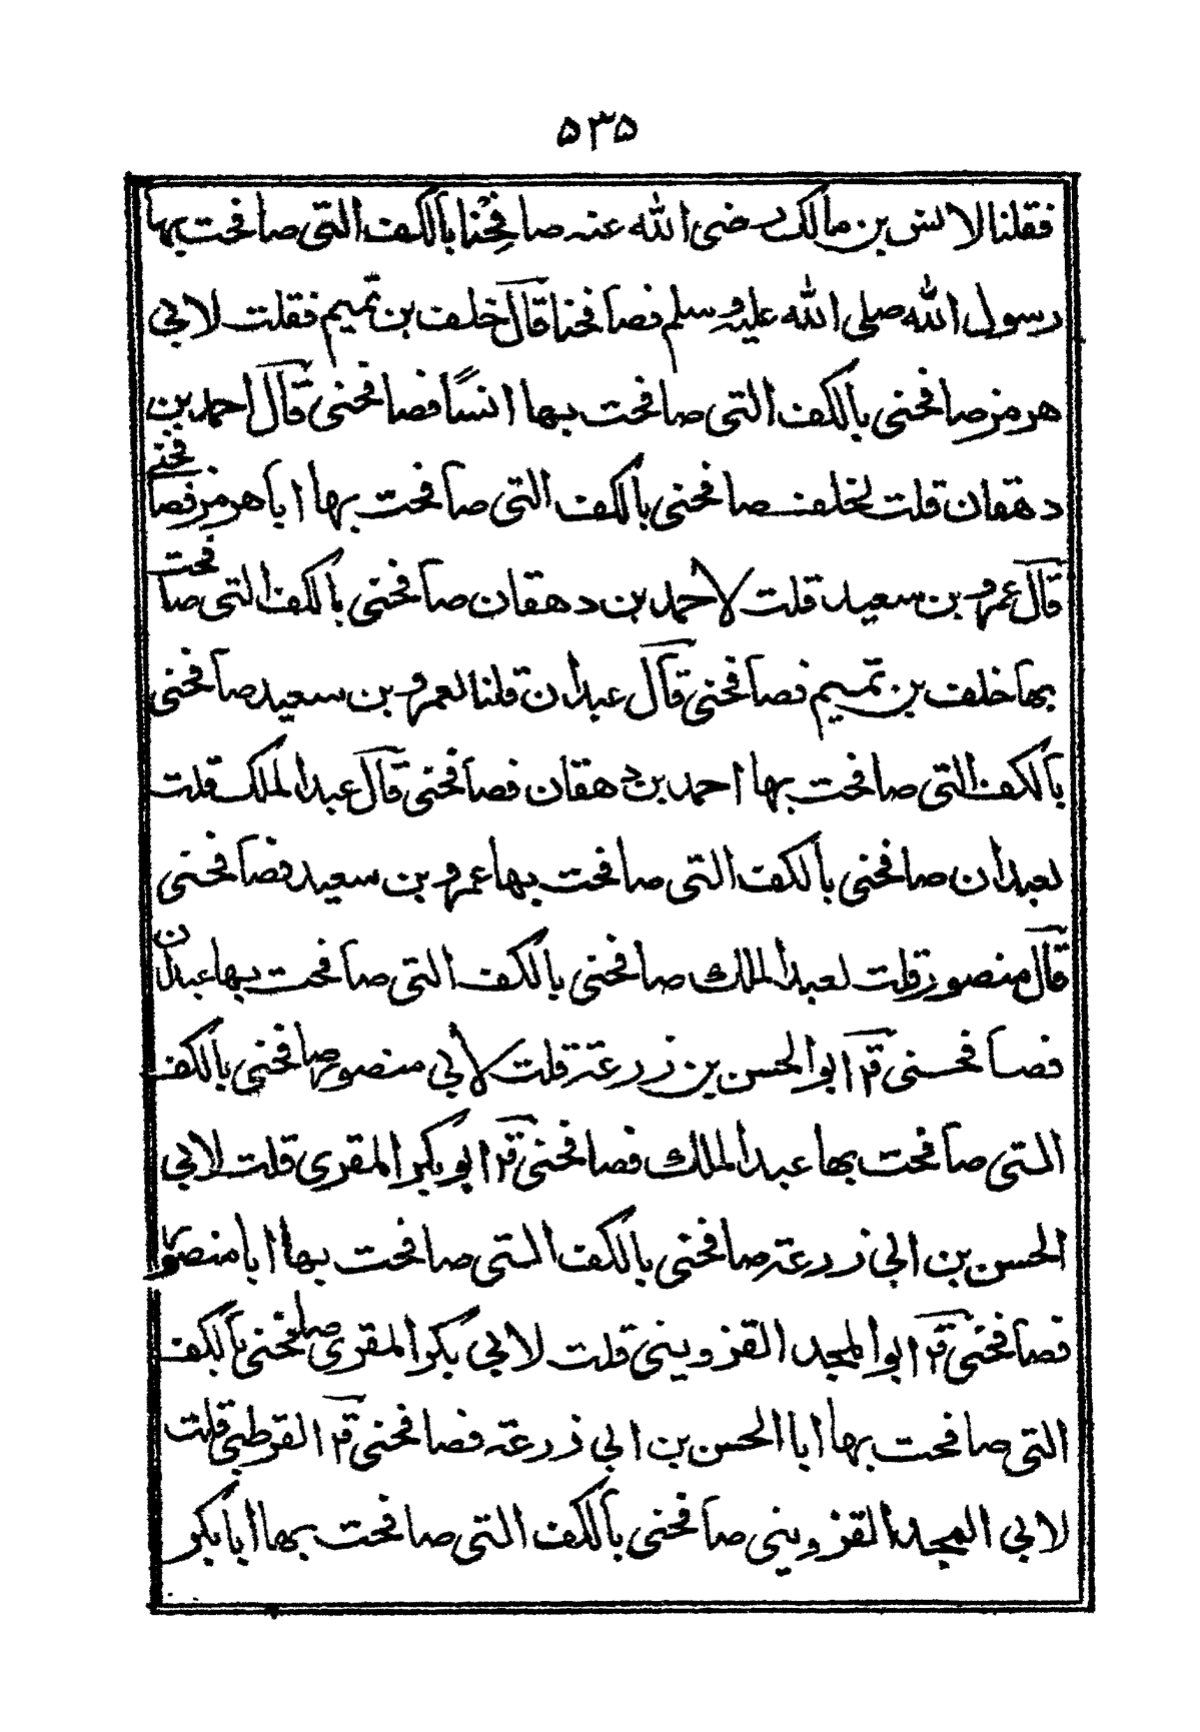 ۵۳۵
فقلنا لانس بن مالك رضى الله عنه صافِحْنا بالكف التى صافحت بها
رسول الله صلى الله عليه وسلم فصافحنا قال خلف بن تميم فقلت لابي
هرمز صافحنى بالكف التى صافحت بها انسًا فصافحنى قال احمد بن
دهقان قلت لخلف صافحنى بالكف التى صافحت بها ابا هرمز فصافحنى
قال عمرو بن سعيد قلت لاحمد بن دهقان صافحنى بالكف التى صافحت
بها خلف بن تميم فصافحنى قال عبدان قلنا لعمرو بن سعيد صافحنى
بالكف التى صافحت بها احمد بن دهقان فصافحنى قال عبد الملك قلت
لعبدان صافحنى بالكف التى صافحت بها عمرو بن سعيد فصافحنى
قال منصور قلت لعبد الملك صافحنى بالكف التى صافحت بها عبدان
فصافحنى قر ابو الحسن بن زرعة قلت لابي منصور صافحنى بالكف
التى صافحت بها عبد الملك فصافحنى قر ابو بكر المقرى قلت لابي
الحسن بن ابي زرعة صافحنى بالكف التى صافحت بها ابا منصور
فصافحنى قر ابو المجد القزوينى قلت لابي بكر المقرى صافحنى بالكف
التى صافحت بها ابا الحسن بن ابي زرعة فصافحنى قر القرطبى قلت
لابي المجد القزوينى صافحنى بالكف التى صافحت بها ابا بكر